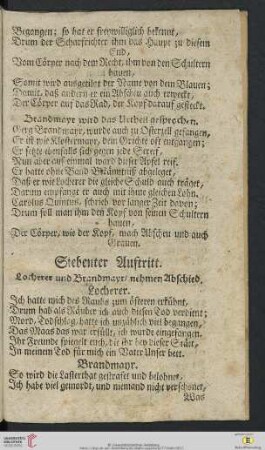 Begangen; so hat er freywilliglich bekennt,
Drum der Scharfrichter ihm das Haupt zu diesem
End,
Vom Cörper nach dem Recht, ihm von den Schultern
hauen,
Somit wird ausgetürt der Name von dem Blauen;
Damit, daß andern er ein Abscheu auch erweckt,
Der Cörper auf das Rad, der Kopf darauf gesteckt.
Brandmayr wird das Urtheil gesprochen.
Georg Brandmayr, wurde auch zu Osterzell gefangen,
Er ist wie Klostermayr, dem Gericht oft entgangen;
Er setzt ebenfalls sich gegen jede Straf,
Nun aber auf einmal ward dieser Apfel reif.
Er hatte ohne Band Bekänntniß abgelegt,
Daß er wie Locherer die gleiche Schuld auch träget,
Darum empfangt er auch mit ihme gleichen Lohn,
Carolus Quintus, schrieb vor langer Zeit davon;
Drum soll man ihm den Kopf von seinen Schultern
hauen,
Der Cörper, wie der Kopf, mach Abscheu und auch
Grauen.
Siebenter Auftritt.
Locherer und Brandmayr nehmen Abschied.
Locherer.
Ich hatte mich des Raubs zum öfteren erkühnt,
Drum hab als Räuber ich auch diesen Tod verdient;
Mord, Todschlag, hatte ich unzählich viel begangen,
Das Maas das war erfüllt, ich wurde eingefangen.
Ihr Freunde spiegelt euch, die ihr bey dieser Stätt,
In meinem Tod für mich ein Vater Unser bett.
Brandmayr.
So wird die Lasterthat gestrafet und belohnet,
Ich habe viel gemordt, und niemand nicht verschonet,
Was